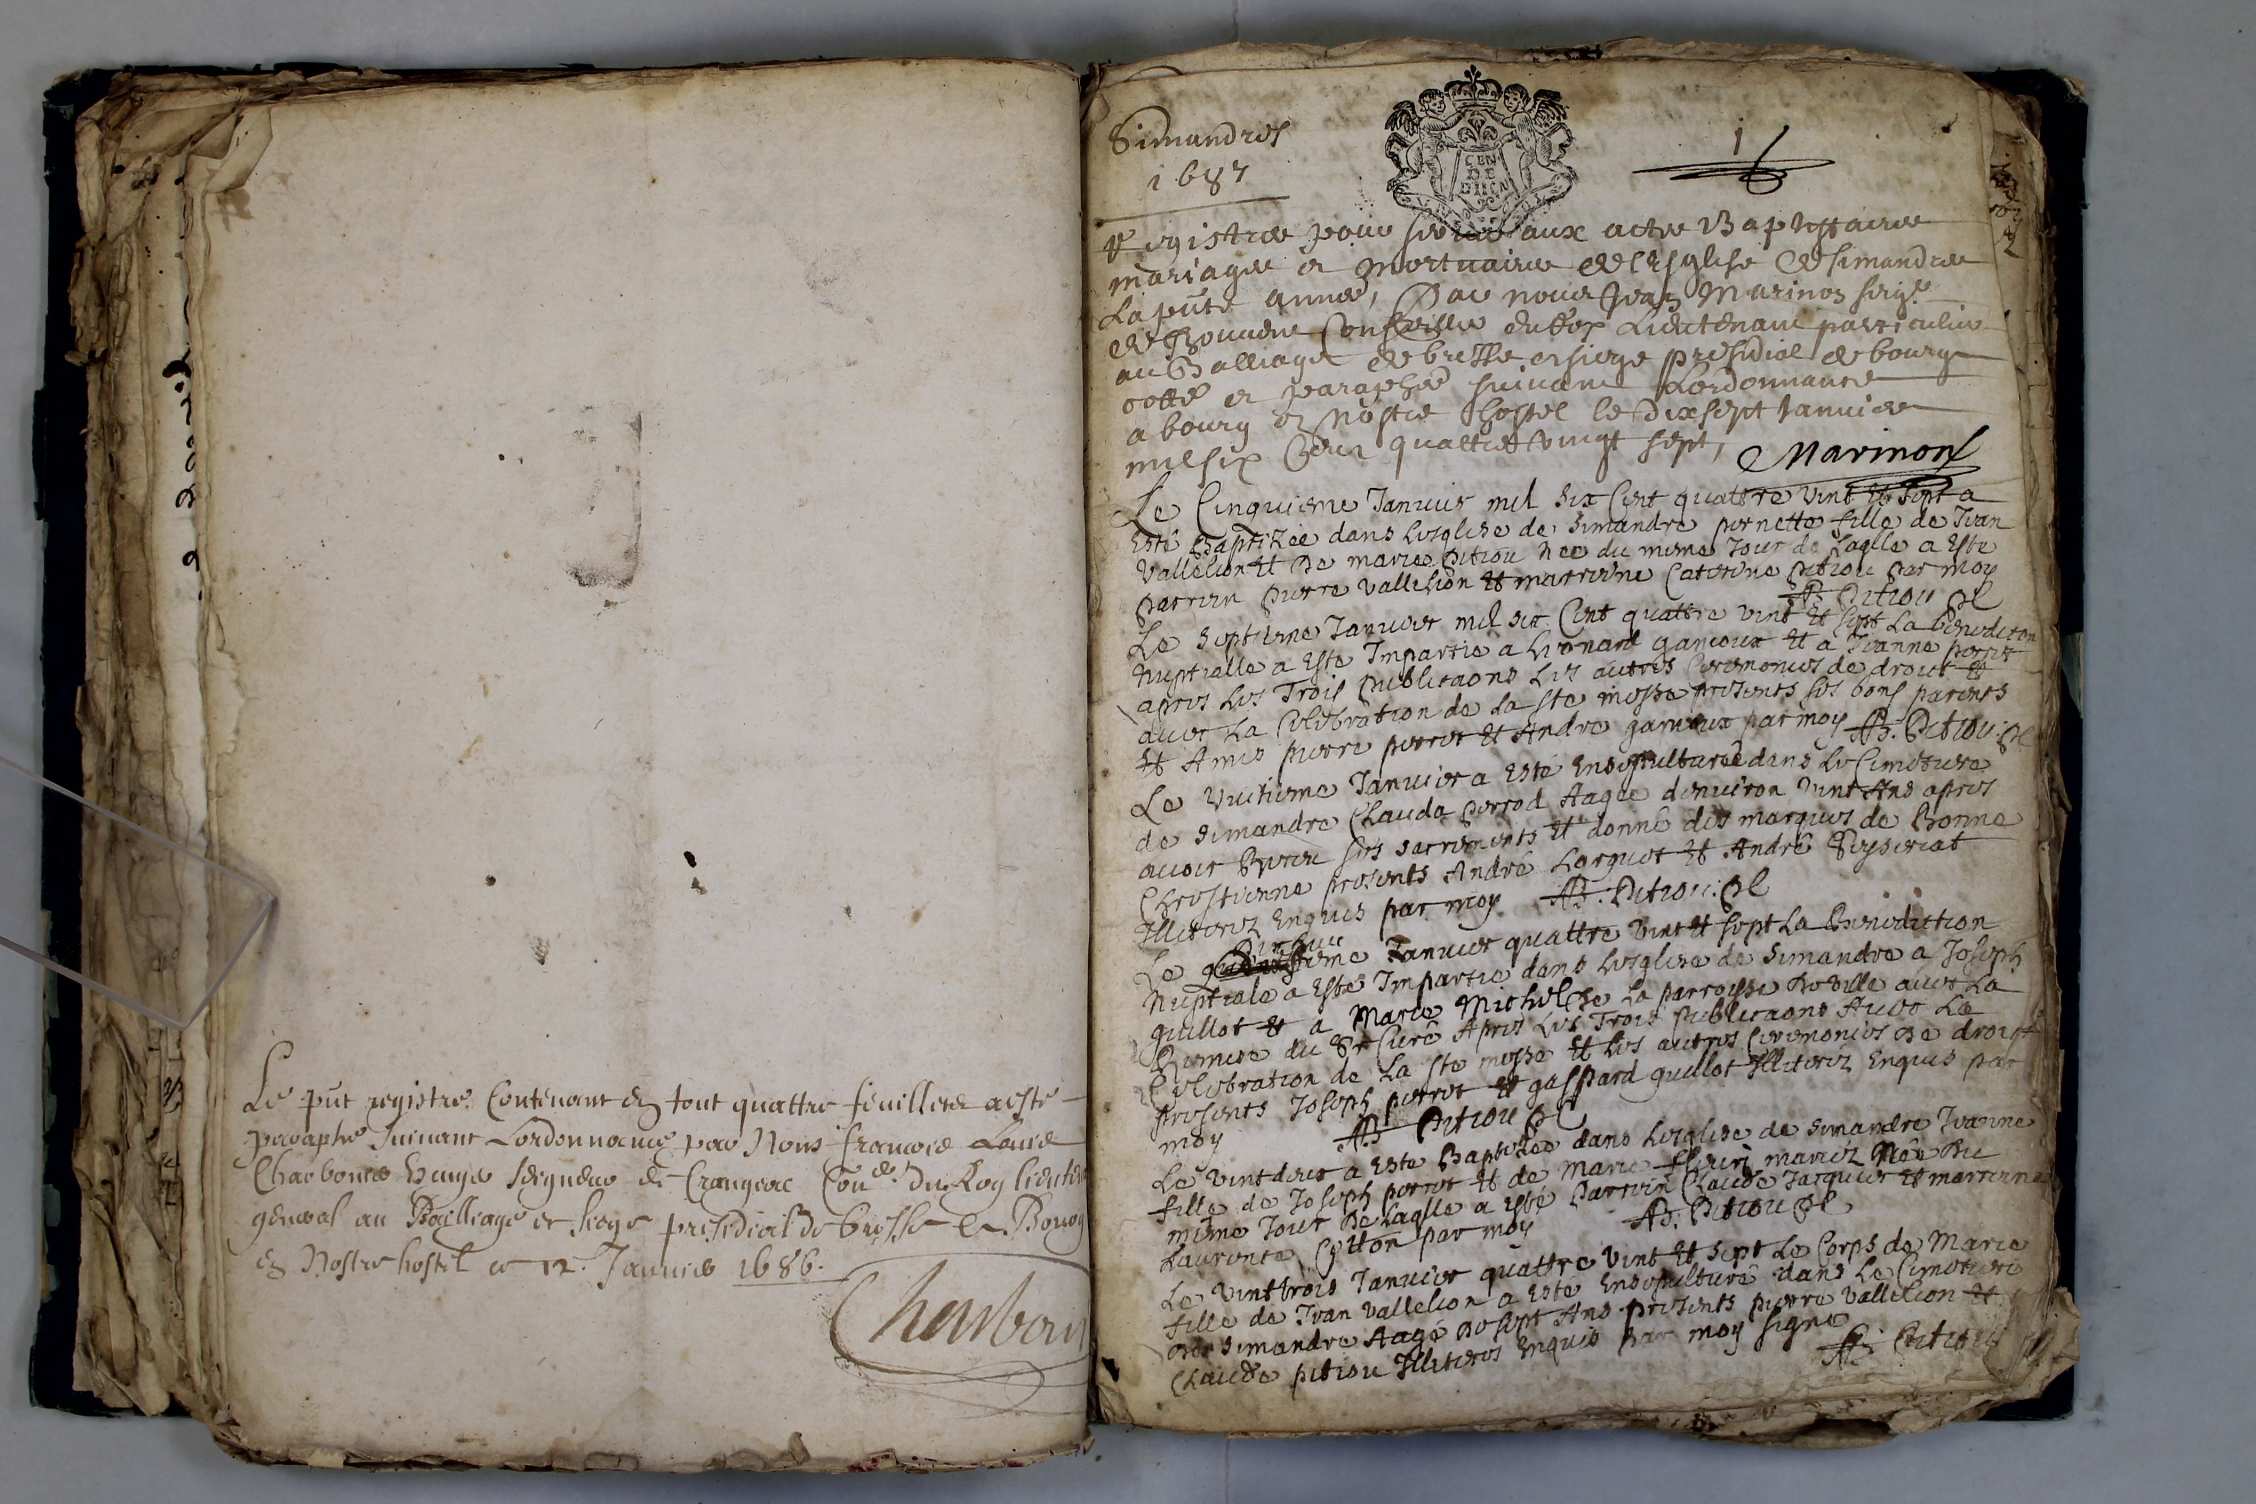 Le pnt registre Contenant en tout quattre feuillets a esté
paraphé suivant L'ordonnance par Nous francois Louis
Charbonnie seigneur de Crangeac Con.er du Roy lieutena
general au Bailliage et siege presidial de bresse a Bourg
en Nostre hostel ce 12. Januier 1686.
Charbon
Simandres
1687
GEN
DE
1
Registre pour servir aux actes Baptistaires
mariages et Mortuaires de l'Esglise de simandres
La pnte année, Par nous Jean Marinon seig.r
de Conseiller du Roy Lieutenant particulier
au Balliage de bresse et siege presidial de bourg
cotté et paraphé suivant L'ordonnance
a bourg en Nostre hostel le dixsept Januier
mil six Cent quattre vingt sept, Marinon
Le Cinquieme Januier mil six Cent quattre vint et sept a
Esté Baptizée dans Lesglise de simandre pernette fille de Jean
Vallelion Et de marie Pitiou Née du mesme Jour de Laqlle a Esté
Parrein pierre Vallelion Et marreine Caterine Pitiou Par moy
Pitiou
Le septieme Januier mil six Cent quattre vint Et sept La benediton
Nuptialle a Esté Impartie a Leonard gameux Et a Jeanne perret
apres Les Trois publicaons Les autres Ceremonies de droict Et
avec La Celebration de La ste messe presents ses bons parents
Et Amis pierre perret Et Andre gameux par moy Pitiou
Le Vuitieme Januier a Esté Ensepulturée dans Le Cimetiere
de simandre Clauda perrod Aagée denviron Vint Ans apres
avoir Receu ses sacrements Et donné des marques de Bonne
Chrestienne presents André Larguet Et André Reyseriat
Illiterez Enquis par moy Pitiou
Le Januier quattre vint et sept La Benediction
Nuptiale a Esté Impartie dans Lesglise de simandre a Joseph
guillot Et a Marie Michel De La parroisse De ville avec La
Remise du Sr Curé Apres Les Trois publicaons Avec La
Celebration de La ste messe Et Les autres Ceremonies De droict
presents Joseph perret Et gaspard guillot Illiterez Enquis par
moy Pitiou
Le Vintdeux a Esté Baptizée dans Lesglise de simandre Jeanne
fille de Joseph perret Et de Marie mariez Née Du
mesme Jour De Laqlle a Esté Parrein Claude Jarquier Et marreine
Laurence Cytton par moy Pitiou
Le Vinttrois Januier quattre Vint Et sept Le Corps de Marie
fille de Jean Vallelion a Esté Ensepulturé dans Le Cimetiere
De simandre Aagé De sept Ans presents pierre Vallelion Et
Claude pitiou Illiteres Enquis Par moy signé
Pitiou